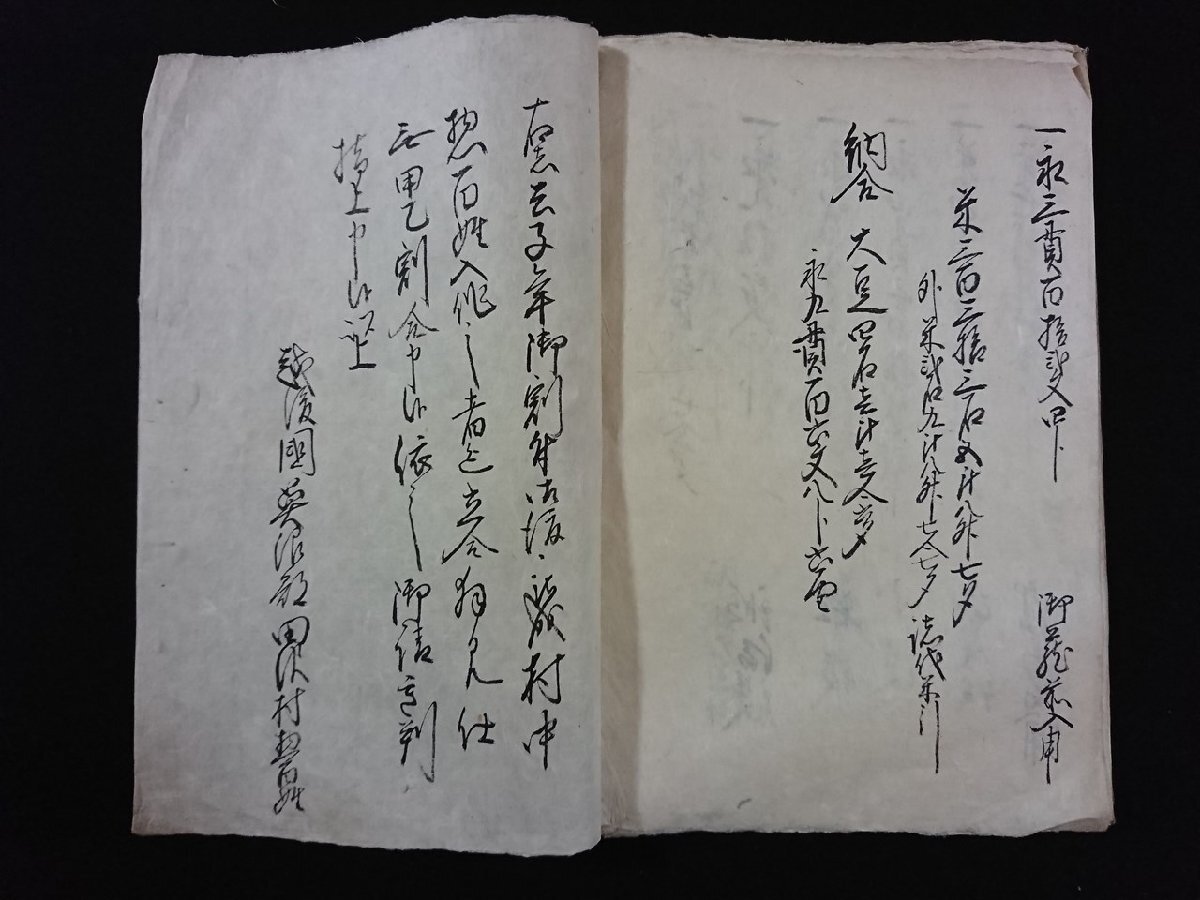 一永三貫百拾弐文四分
御蔵前入用
米三百三拾三石五斗八升七夕
外米弐石九斗八升七合七夕
納合 大豆四石壱斗壱合六夕
永九貫百六文八分六厘
右者去子年御割付御渡ニ付村中
惣百姓入作之者迄立合拝見仕
無甲乙割合申候依之御請印判
指上申候以上
越後国 郡田沢村惣百姓